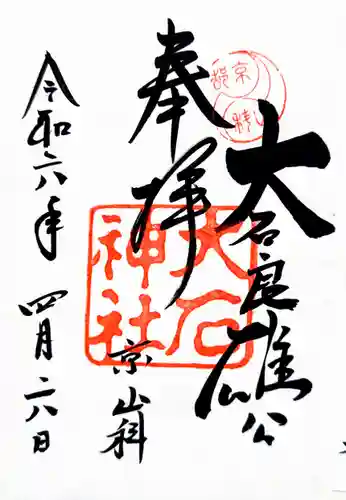 奉拝
大石良雄公
大石神社
京山科
令和六年四月二八日